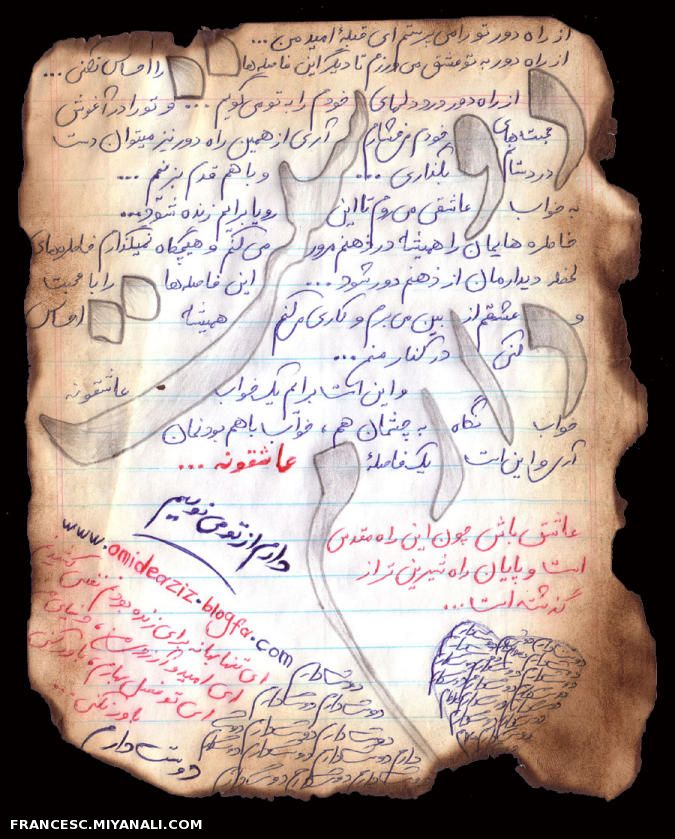 از راه دور تو را می پرستم ای قبلهٔ امید من ...
از راه دور به تو عشق می ورزم تا دیگر این فاصله‌ها را احساس نکنی ...
از راه دور درد دلهای خودم را به تو می گویم ... و تو را در آغوش
محبت‌های خودم می فشارم آری از همین راه دور نیز میتوان دست
در دستانم بگذاری ... و با هم قدم بزنیم ...
به خواب عاشقی می روم تا این رویا برایم زنده شود...
خاطره هایمان را همیشه در ذهنم مرور می کنم و هیچگاه نمیگذارم خاطره‌های
لحظه دیدارمان از ذهنم دور شود ... این فاصله‌ها را با محبت
و عشقم از بین می برم و کاری می کنم همیشه احساس
کنی در کنار منم ...
و این است برایم یک خواب عاشقونه
خواب نگاه به چشمان هم ، خواب با هم بودنمان
آری و این است یک فاصلهٔ عاشقونه ...
دارم از تو می نویسم
www.omideaziz.blogfa.com
عاشق باش چون این راه مقدس
است و پایان راه شیرین تر از
گذشته است ...
ای تنها بهانه برای زنده بودنم نفس کشیدنم
ای امید و آرزوی من ،
ای تو فصل بهارم، باور کنی
باور نکنی ...
دوستت دارم
دوستت دارم
FRANCESC.MIYANALI.COM